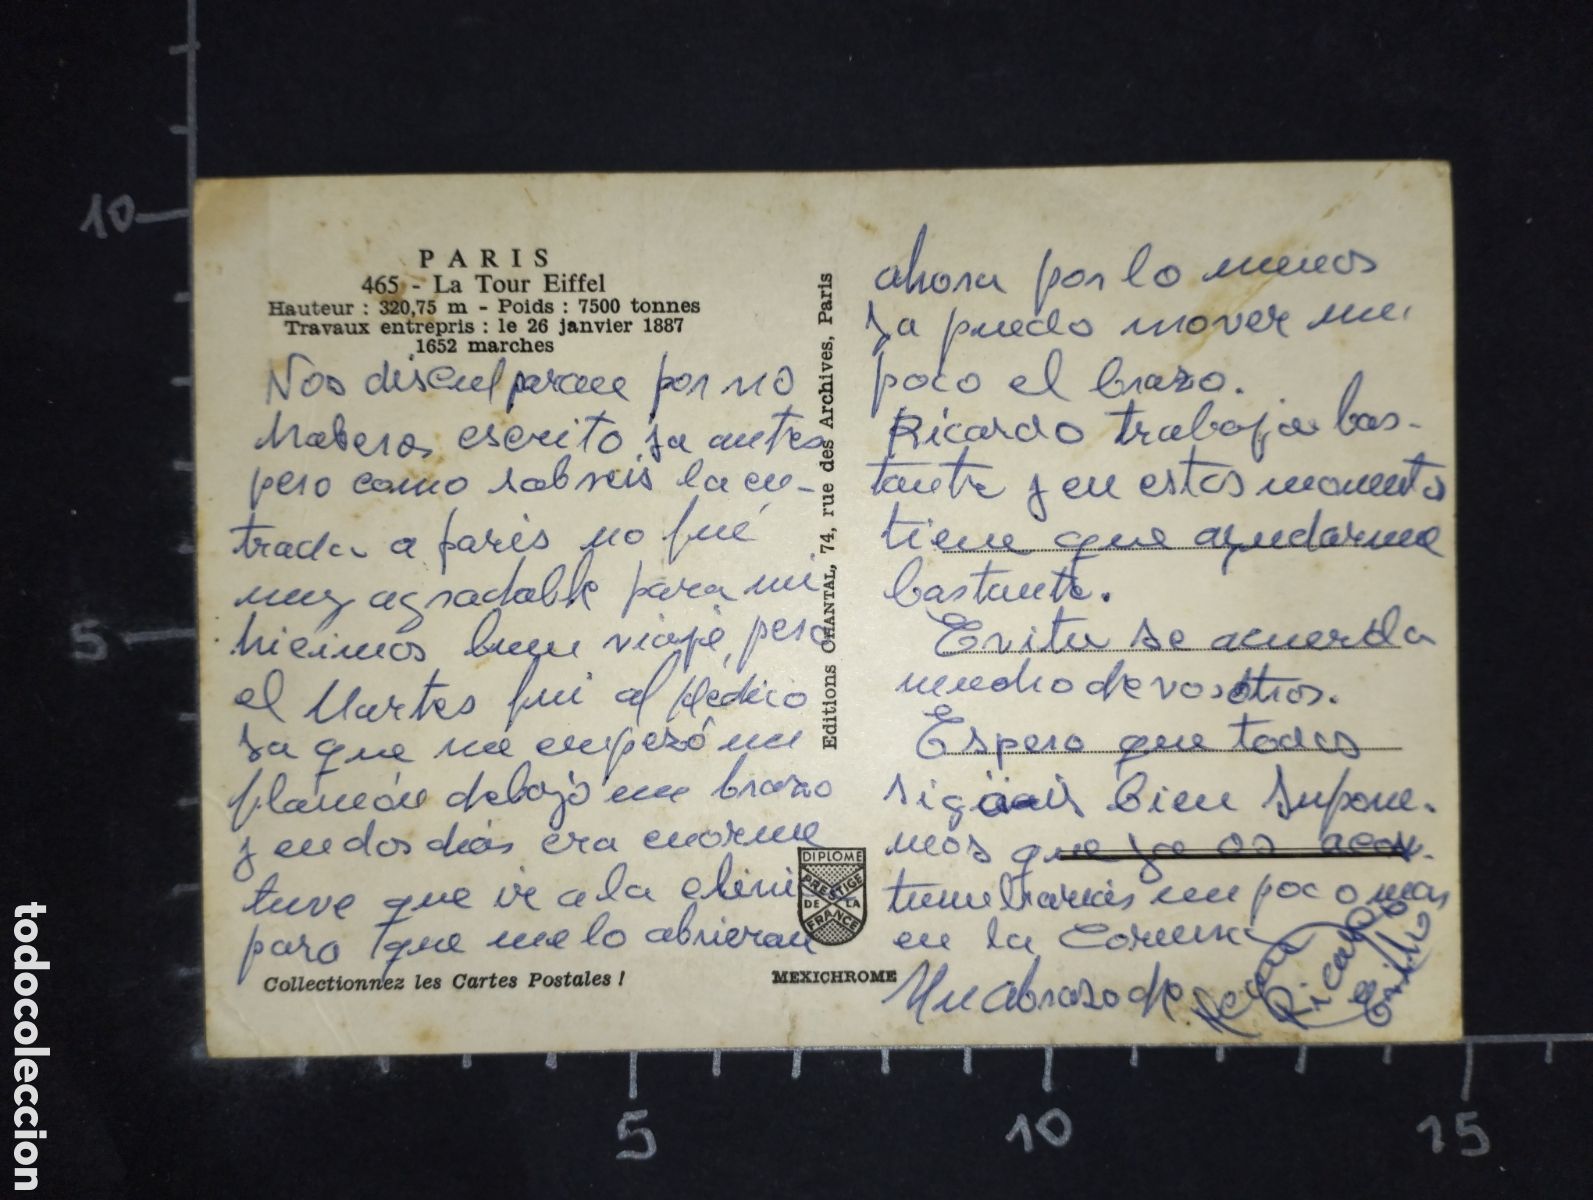 PARIS
465 - La Tour Eiffel
Hauteur : 320,75 m - Poids : 7500 tonnes
Travaux entrepris : le 26 janvier 1887
1652 marches
Nos disculparan por no
haberos escrito ya antes
pero como sabreis la en-
trada a paris no fué
muy agradable para mi
hicimos buen viaje, pero
el Martes fui al Médico
ya que me empezó un
flemón debajo un brazo
y en dos días era enorme
tuve que ir a la clini
para que me lo abrieran
Collectionnez les Cartes Postales !
Editions CHANTAL, 74, rue des Archives, Paris
DIPLOME
PRESTIGE
DE LA
FRANCE
MEXICHROME
ahora por lo menos
ya puedo mover un
poco el brazo.
Ricardo trabaja bas-
tante y en estos momentos
tiene que ayudarme
bastante.
Evita se acuerda
mucho de vosotros.
Espero que todos
sigais bien supone-
mos que ya os acos-
tumbrariais un poco mas
en la Coruña
Un abrazo de
Ricardo
10
5
5
10
15
todocoleccion